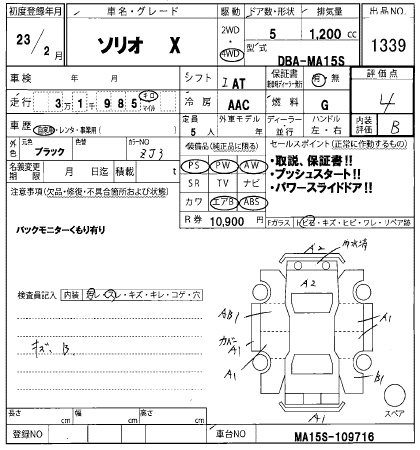 初度登録年月 車名・グレード 駆動 ドア数・形状 排気量 出品NO
23年 2月 ソリオ X 2WD・4WD 5 1,200 cc 1339
型式 DBA-MA15S
車検 年 月 シフト I AT 保証書 有・無 評価点 4
走行 3万1千985 キロ マイル 冷房 AAC 燃料 G
車歴 自家用・レンタ・事業用( ) 定員 5人 外車モデル 年 ディーラー 並行 ハンドル 左・右 内装評価 B
外色 元色 ブラック 色替 カラーNO ZJ3 装備品(純正品に限る) セールスポイント(正常に作動するもの)
名義変更期限 月 日迄 積載 t PS PW AW ・取説、保証書!!
注意事項(欠品・修復・不具合箇所および状態) SR TV ナビ ・プッシュスタート!!
カワ エアB ABS ・パワースライドドア!!
バックモニターくもり有り R券 10,900 円 Fガラス ヒビ石・キズ・ヒビ・ワレ・リペア跡
A2
A2
検査員記入 内装 汚レ・スレ・キズ・キレ・コゲ・穴
AB1 A1
キズ、B、 カバー A1
A1 B1
スペア
長さ cm 幅 cm 高さ cm A1
登録NO 車台NO MA15S-109716